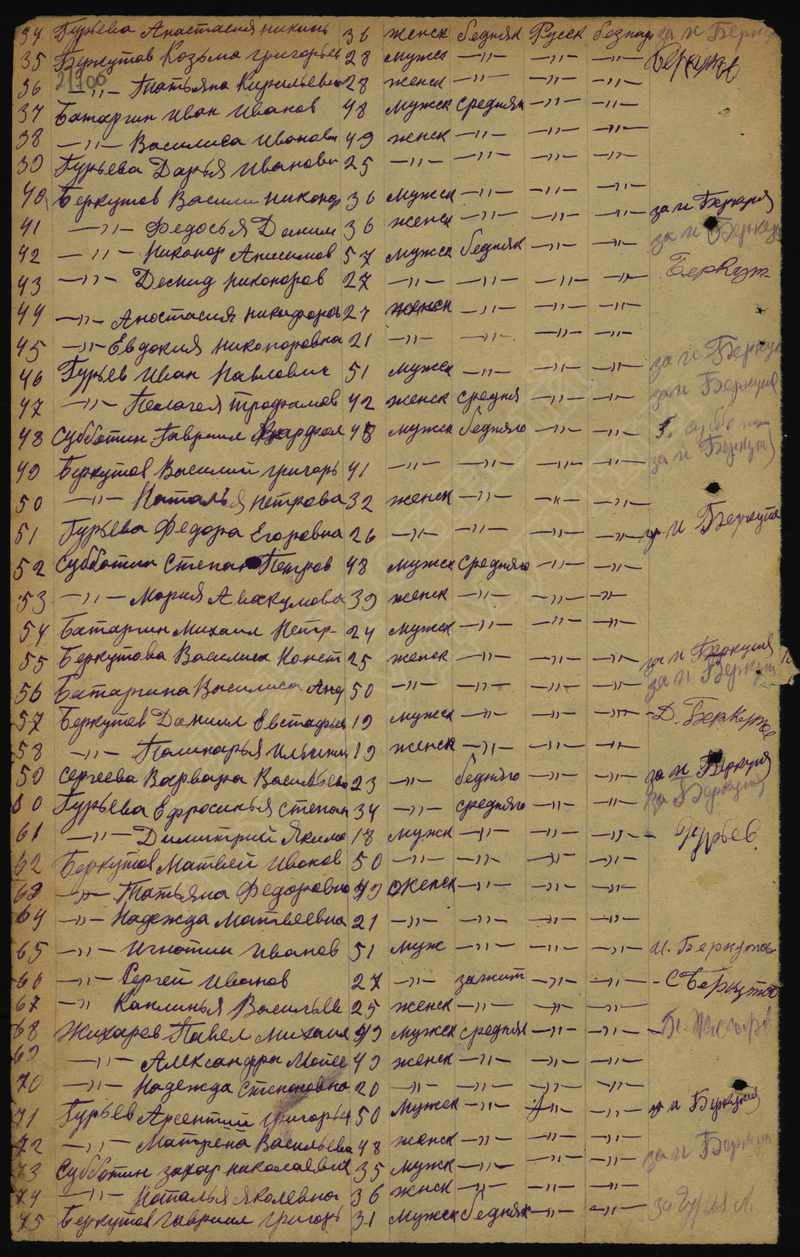 34 Гурьева Анастасия никит 36 женск бедняк Русск безпар за н Беркут
35 Беркутов Козьма григорьев 28 мужск —"— —"— —"— Беркутов
36 —"— Татьяна Кириловна 28 женск —"— —"— —"—
37 Батаргин Иван Иванов 48 мужск средняк —"— —"—
38 —"— Василиса Иванова 49 женск —"— —"— —"—
39 Гурьева Дарья Иванова 25 —"— —"— —"— —"—
40 Беркутов Василий никанор 36 мужск —"— —"— —"—
41 —"— Федосья Данил 36 женск —"— —"— —"— за н Беркутов
42 —"— Никанор Анисимов 57 мужск бедняк —"— —"— за н Беркутов
43 —"— Деомид никоноров 27 —"— —"— —"— —"— Беркут
44 —"— Анастасия никифоров 27 женск —"— —"— —"—
45 —"— Евдокия никоноровна 21 —"— —"— —"— —"—
46 Гурьев Иван Павлович 51 мужск —"— —"— —"— за н Беркут
47 —"— Пелагея трофимов 42 женск средня —"— —"— за н Беркутов
48 Субботин Гавриил 48 мужск бедняго —"— —"— Г. Субботин
49 Беркутов Василий григорь 41 —"— —"— —"— —"— за н Беркутов
50 —"— Наталья петрова 32 женск —"— —"— —"—
51 Гурьева Федора Егоровна 26 —"— —"— —"— —"— за н Беркутов
52 Субботин Степан Петров 48 мужск средняго —"— —"—
53 —"— Мария Авакумова 39 женск —"— —"— —"—
54 Батаргин Михаил Петр- 24 мужск —"— —"— —"—
55 Беркутова Василиса Конст 25 женск —"— —"— —"— за н Беркутов
56 Батаргина Василиса Анд 50 —"— —"— —"— —"— за н Беркут
57 Беркутов Даниил Евстафьев 19 мужск —"— —"— —"— Д. Беркутов
58 —"— Палинарья Ильинич 19 женск —"— —"— —"—
59 Сергеева Варвара Васильевна 23 —"— бедняго —"— —"— за н Беркутов
60 Гурьева Ефросинья степан 34 —"— средняго —"— —"— за Беркутов
61 —"— Димитрий Якимо 18 мужк —"— —"— —"— Гурьев
62 Беркутов Матвей Иванов 50 —"— —"— —"— —"—
63 —"— Татьяна Федоровна 49 женск —"— —"— —"—
64 —"— Надежда Матвеевна 21 —"— —"— —"— —"—
65 —"— Игнатий Иванов 51 муж —"— —"— —"— И. Беркутов
66 —"— Сергей Иванов 27 —"— зажит —"— —"— С Беркутов
67 —"— Каплинья Васильев 25 женск —"— —"— —"—
68 Жихарев Павел михаил 49 мужск средняк —"— —"— П. Жихарев
69 —"— Александра Моисе 49 женск —"— —"— —"—
70 —"— Надежда Степановна 20 —"— —"— —"— —"—
71 Гурьев Арсентий григорьев 50 мужск —"— —"— —"— за н Беркутов
72 —"— Матрена Васильева 48 женск —"— —"— —"—
73 Субботин захар николаевич 35 мужск —"— —"— —"— за н Беркут
74 —"— Наталья Яколевна 36 женск —"— —"— —"—
75 Беркутов гавриил григорь 31 мужск бедняк —"— —"— за Гурья А.